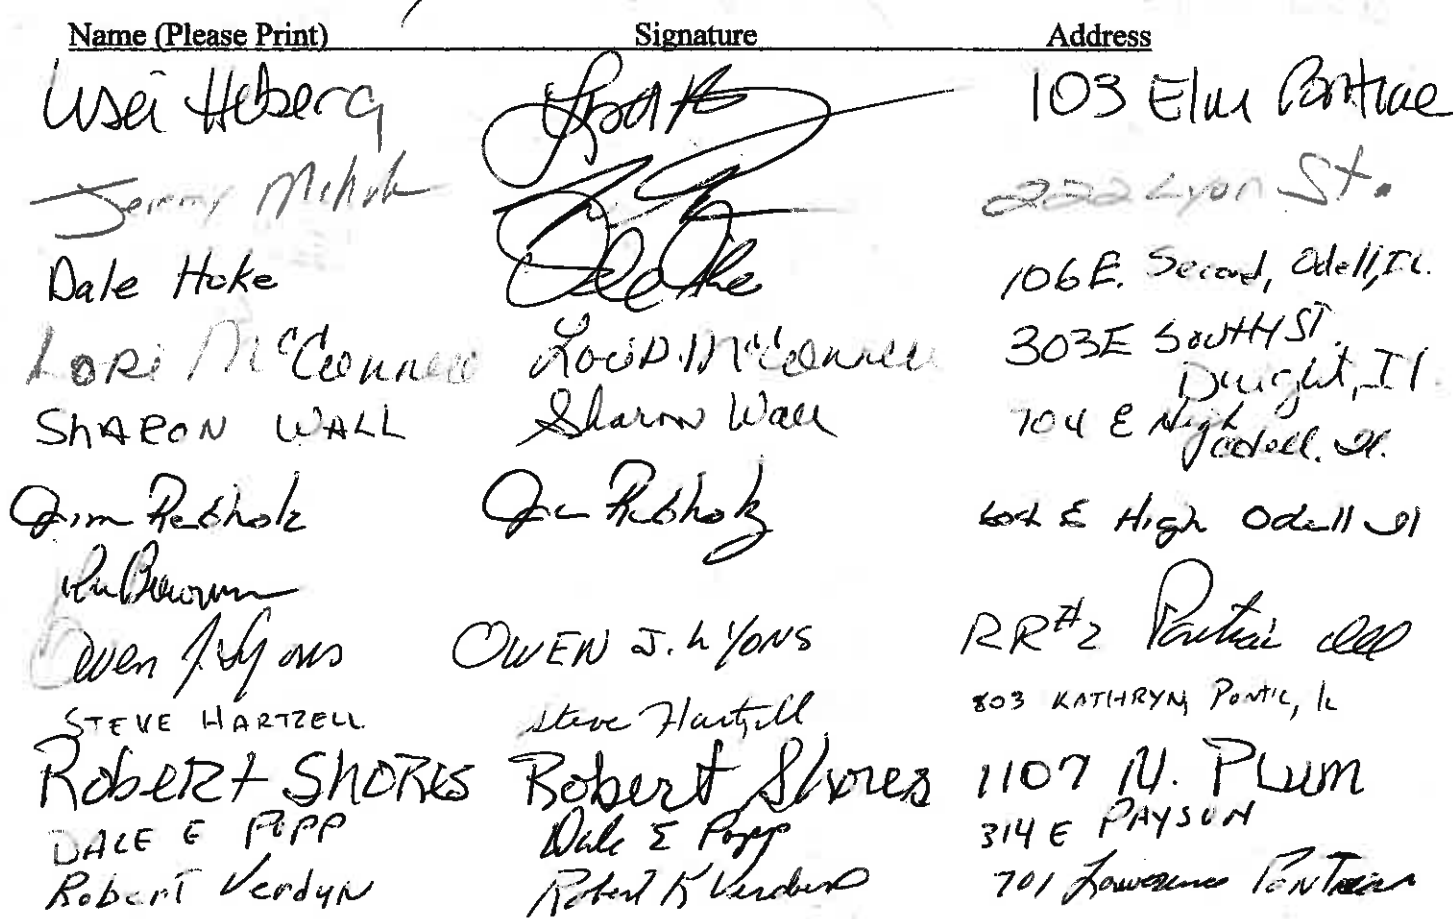 Name (Please Print) Signature Address
103 Elm Pontiac
Jerry 222 Lyon St.
Dale Hoke Dale Hoke 106 E. Second, Odell, IL.
LORI McConnell Lori D. McConnell 303 E SOUTH ST.
Dwight, Il.
SHARON WALL Sharon Wall 704 E High
Odell. Il.
Jim Rebholz Jim Rebholz E High Odell Il
Owen J. Lyons OWEN J. LYONS RR#2 Pontiac Ill
STEVE HARTZELL Steve Hartzell 803 KATHRYN, PONTIC, IL
RobeRt SHORES Robert Shores 1107 N. PLUM
DALE E POPP Dale E Popp 314 E PAYSON
Robert Verdun Robert K Verdun 701 Lawrence PONTIAC